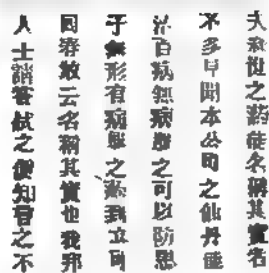 世之游徒名稱其實名
不多早聞本公司之仙丹能
治百病無病服之可以防患
于無形有病服之藥到立可
回春敢云名稱其實也我邦
人士請嘗試之便知言之不